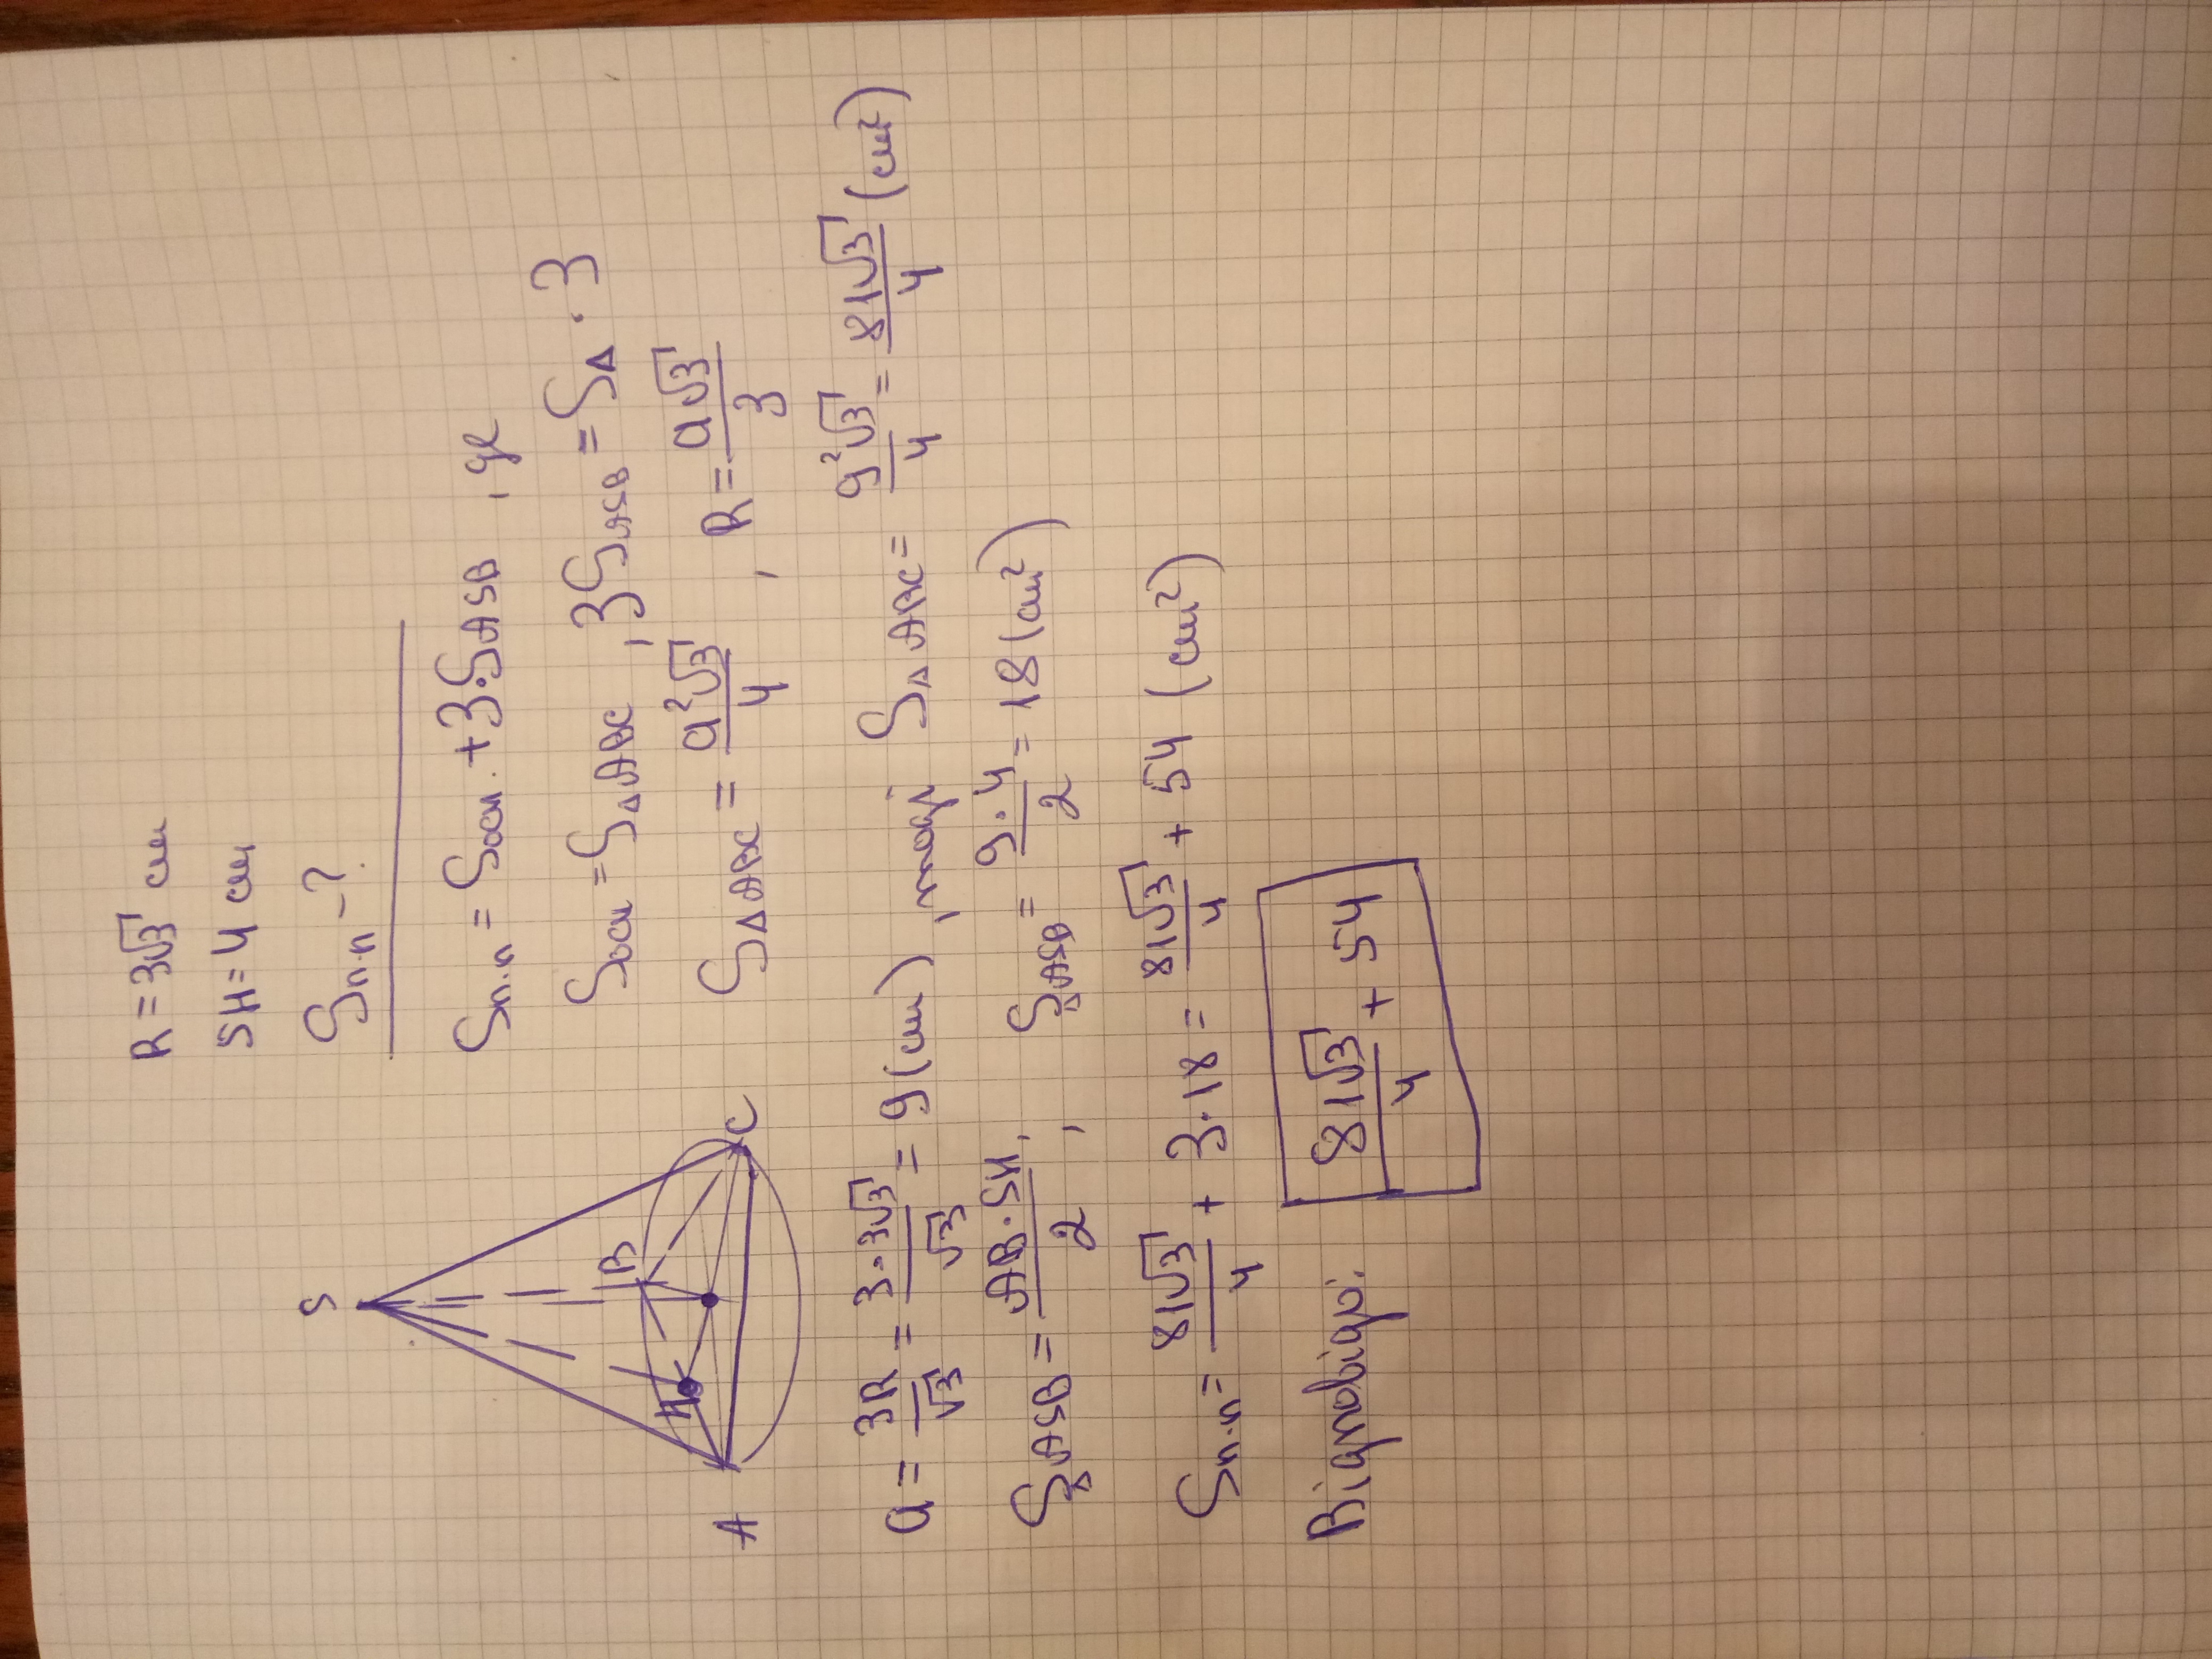 R = 3√3 см
SH = 4 см
Sп.п – ?
Sп.п = Sосн. + 3·SASB , де
Sосн = S△ABC , 3SASB = S△ · 3
S△ABC = a²√3/4 , R = a√3/3
S
B
H
A
C
a = 3R/√3 = 3·3√3/√3 = 9 (см) , тоді S△ABC = 9²√3/4 = 81√3/4 (см²)
S△ASB = AB·SH/2 , S△ASB = 9·4/2 = 18 (см²)
Sп.п = 81√3/4 + 3·18 = 81√3/4 + 54 (см²)
Відповідь: 81√3/4 + 54